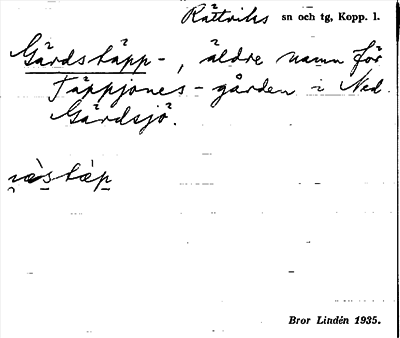 Rättviks sn och tg, Kopp. l.
Gärdstäpp-, äldre namn för
Täppjones-gården i Ned.
Gärdsjö.
Bror Lindén 1935.